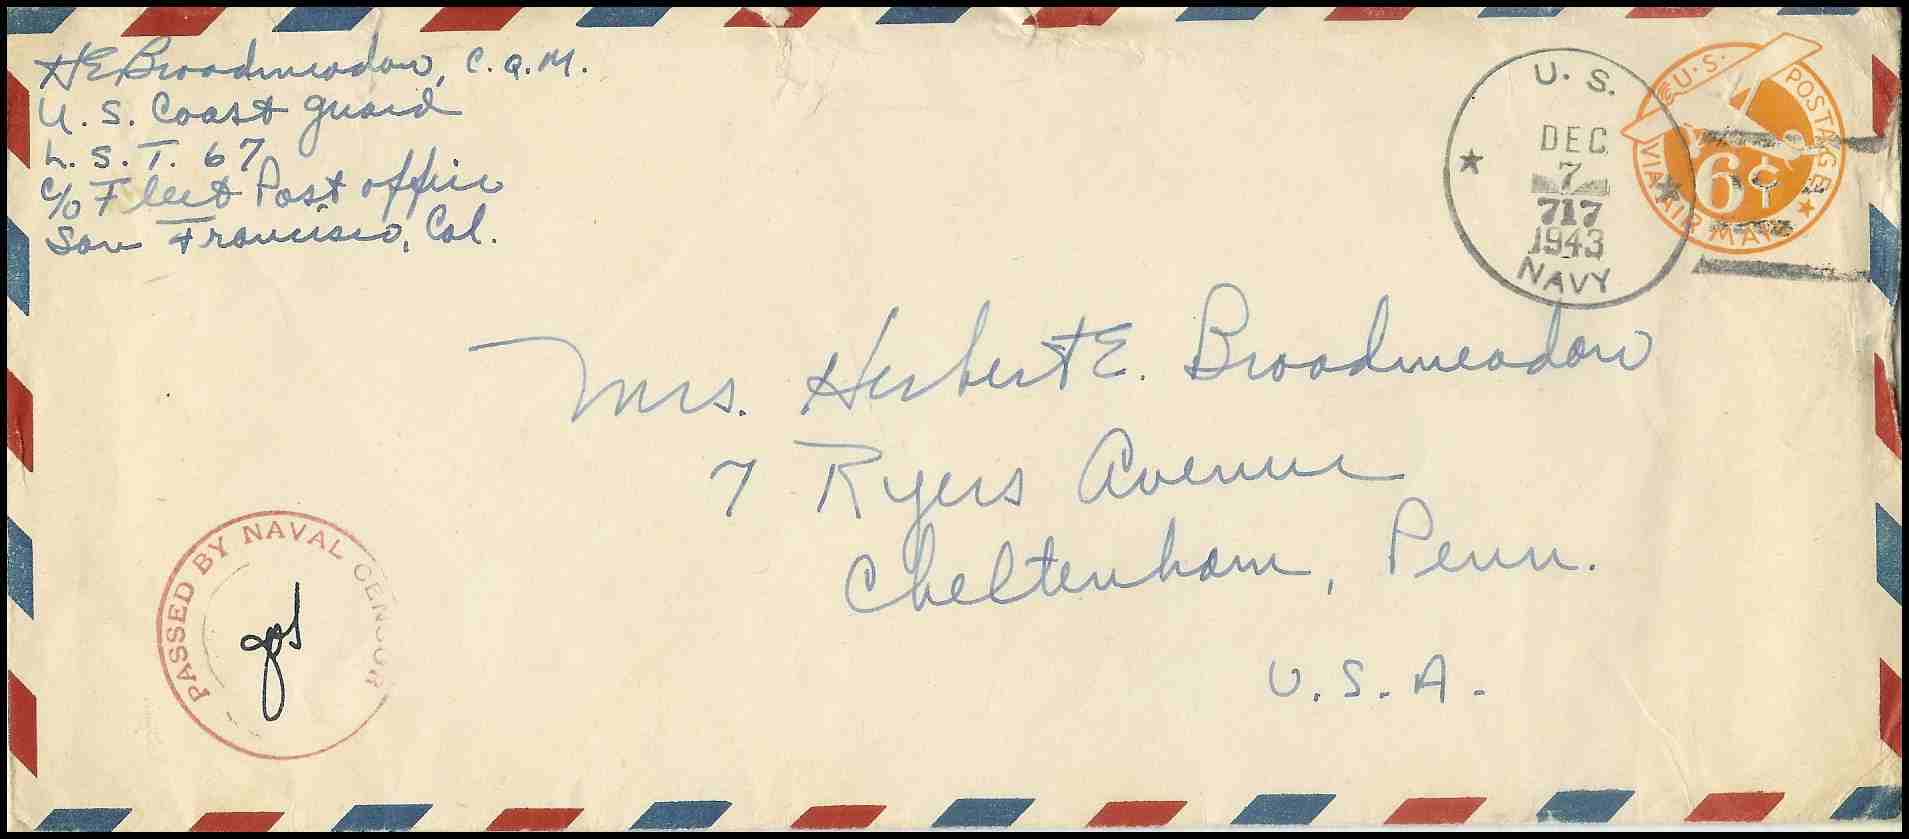 H E Broadmeadow, C.Q.M.
U.S. Coast guard
L.S.T. 67
c/o Fleet Post office
San Francisco, Cal.
U.S.
DEC
7
717
1943
NAVY
U.S. POSTAGE
6¢
VIA AIR MAIL
Mrs. Herbert E. Broadmeadow
7 Ryers Avenue
Cheltenham, Penn.
U.S.A.
PASSED BY NAVAL CENSOR